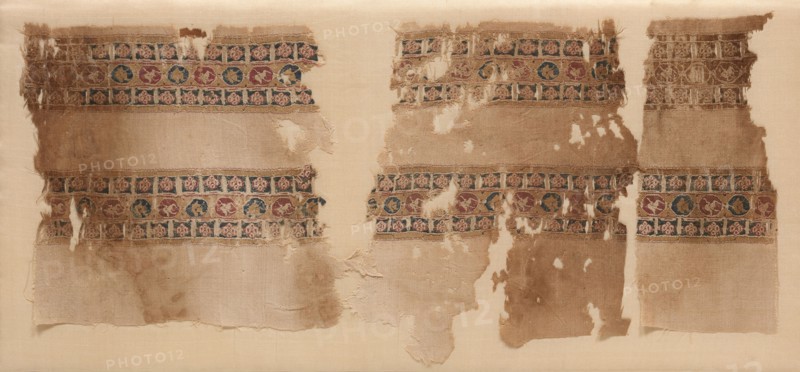 PHOTO12
PHOTO12
PHOTO12
PHOTO12
PHOTO12
PHOTO12
PHOTO12
PHOTO12